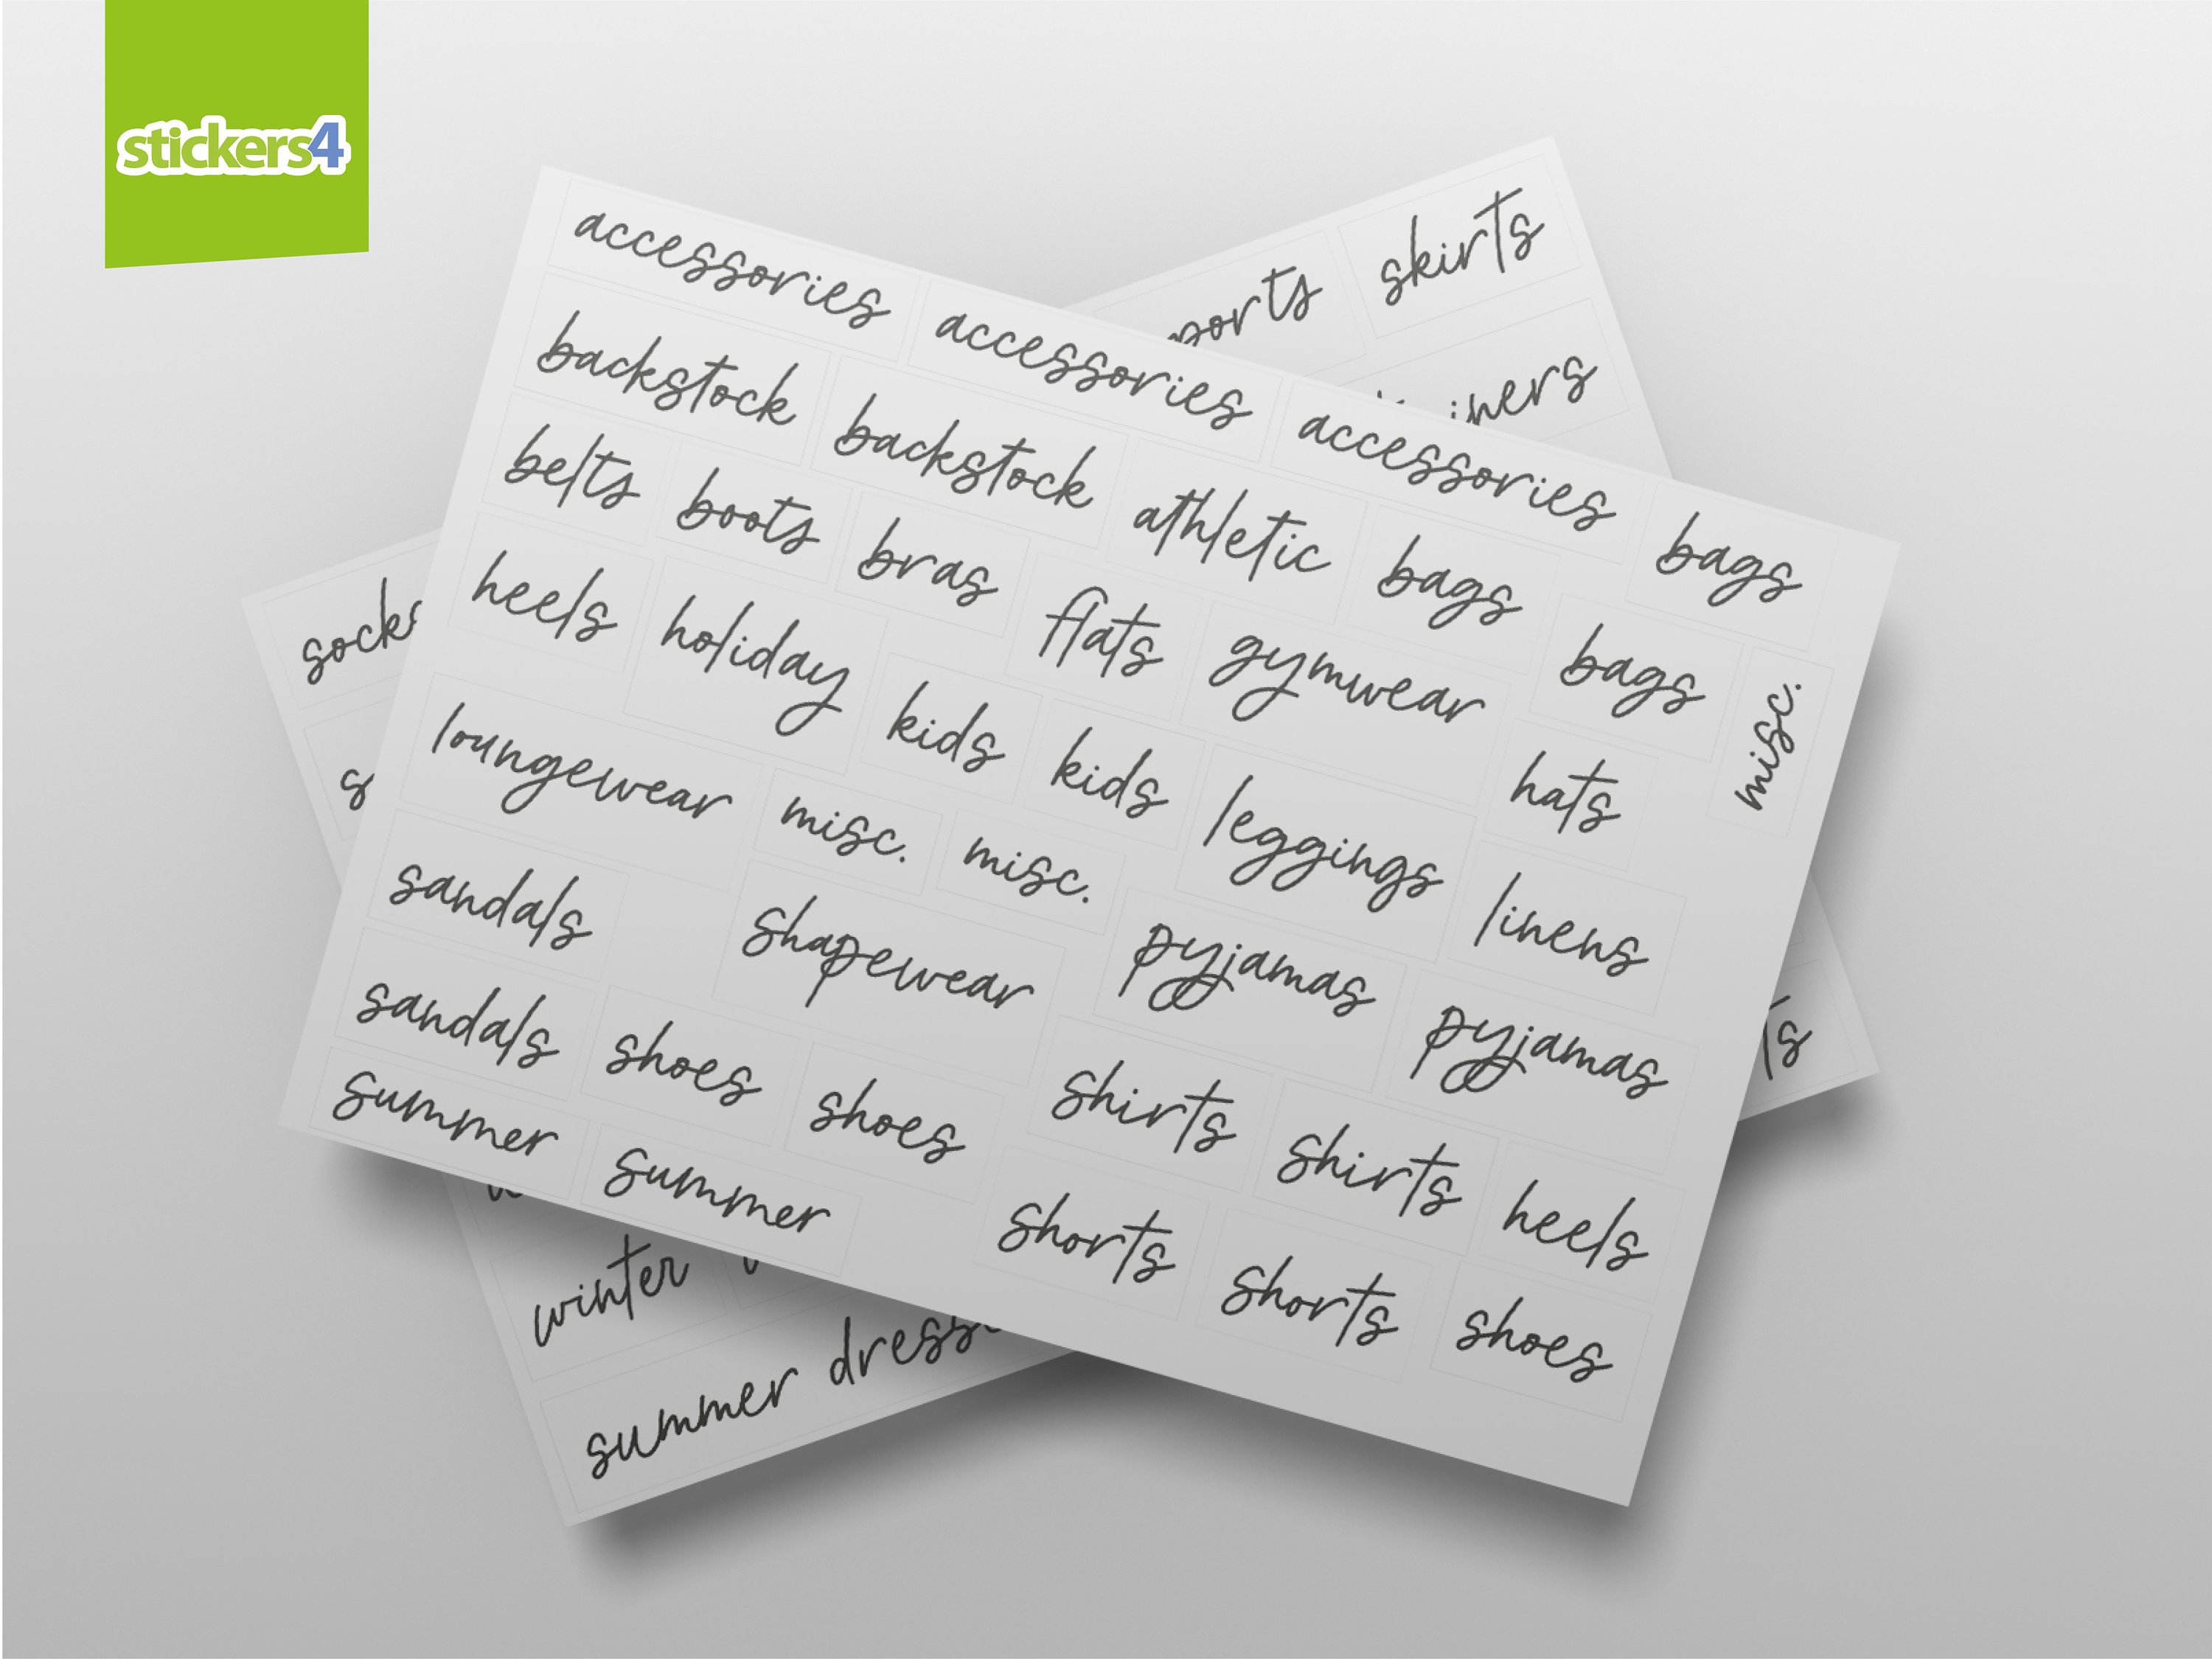 stickers4
skirts
accessories accessories accessories bags
backstock backstock athletic bags bags misc.
belts boots bras flats gymwear hats
heels holiday kids kids leggings linens
loungewear misc. misc. pyjamas pyjamas
sandals shapewear shirts shirts heels
sandals shoes shoes shorts shorts shoes
summer summer
winter
summer